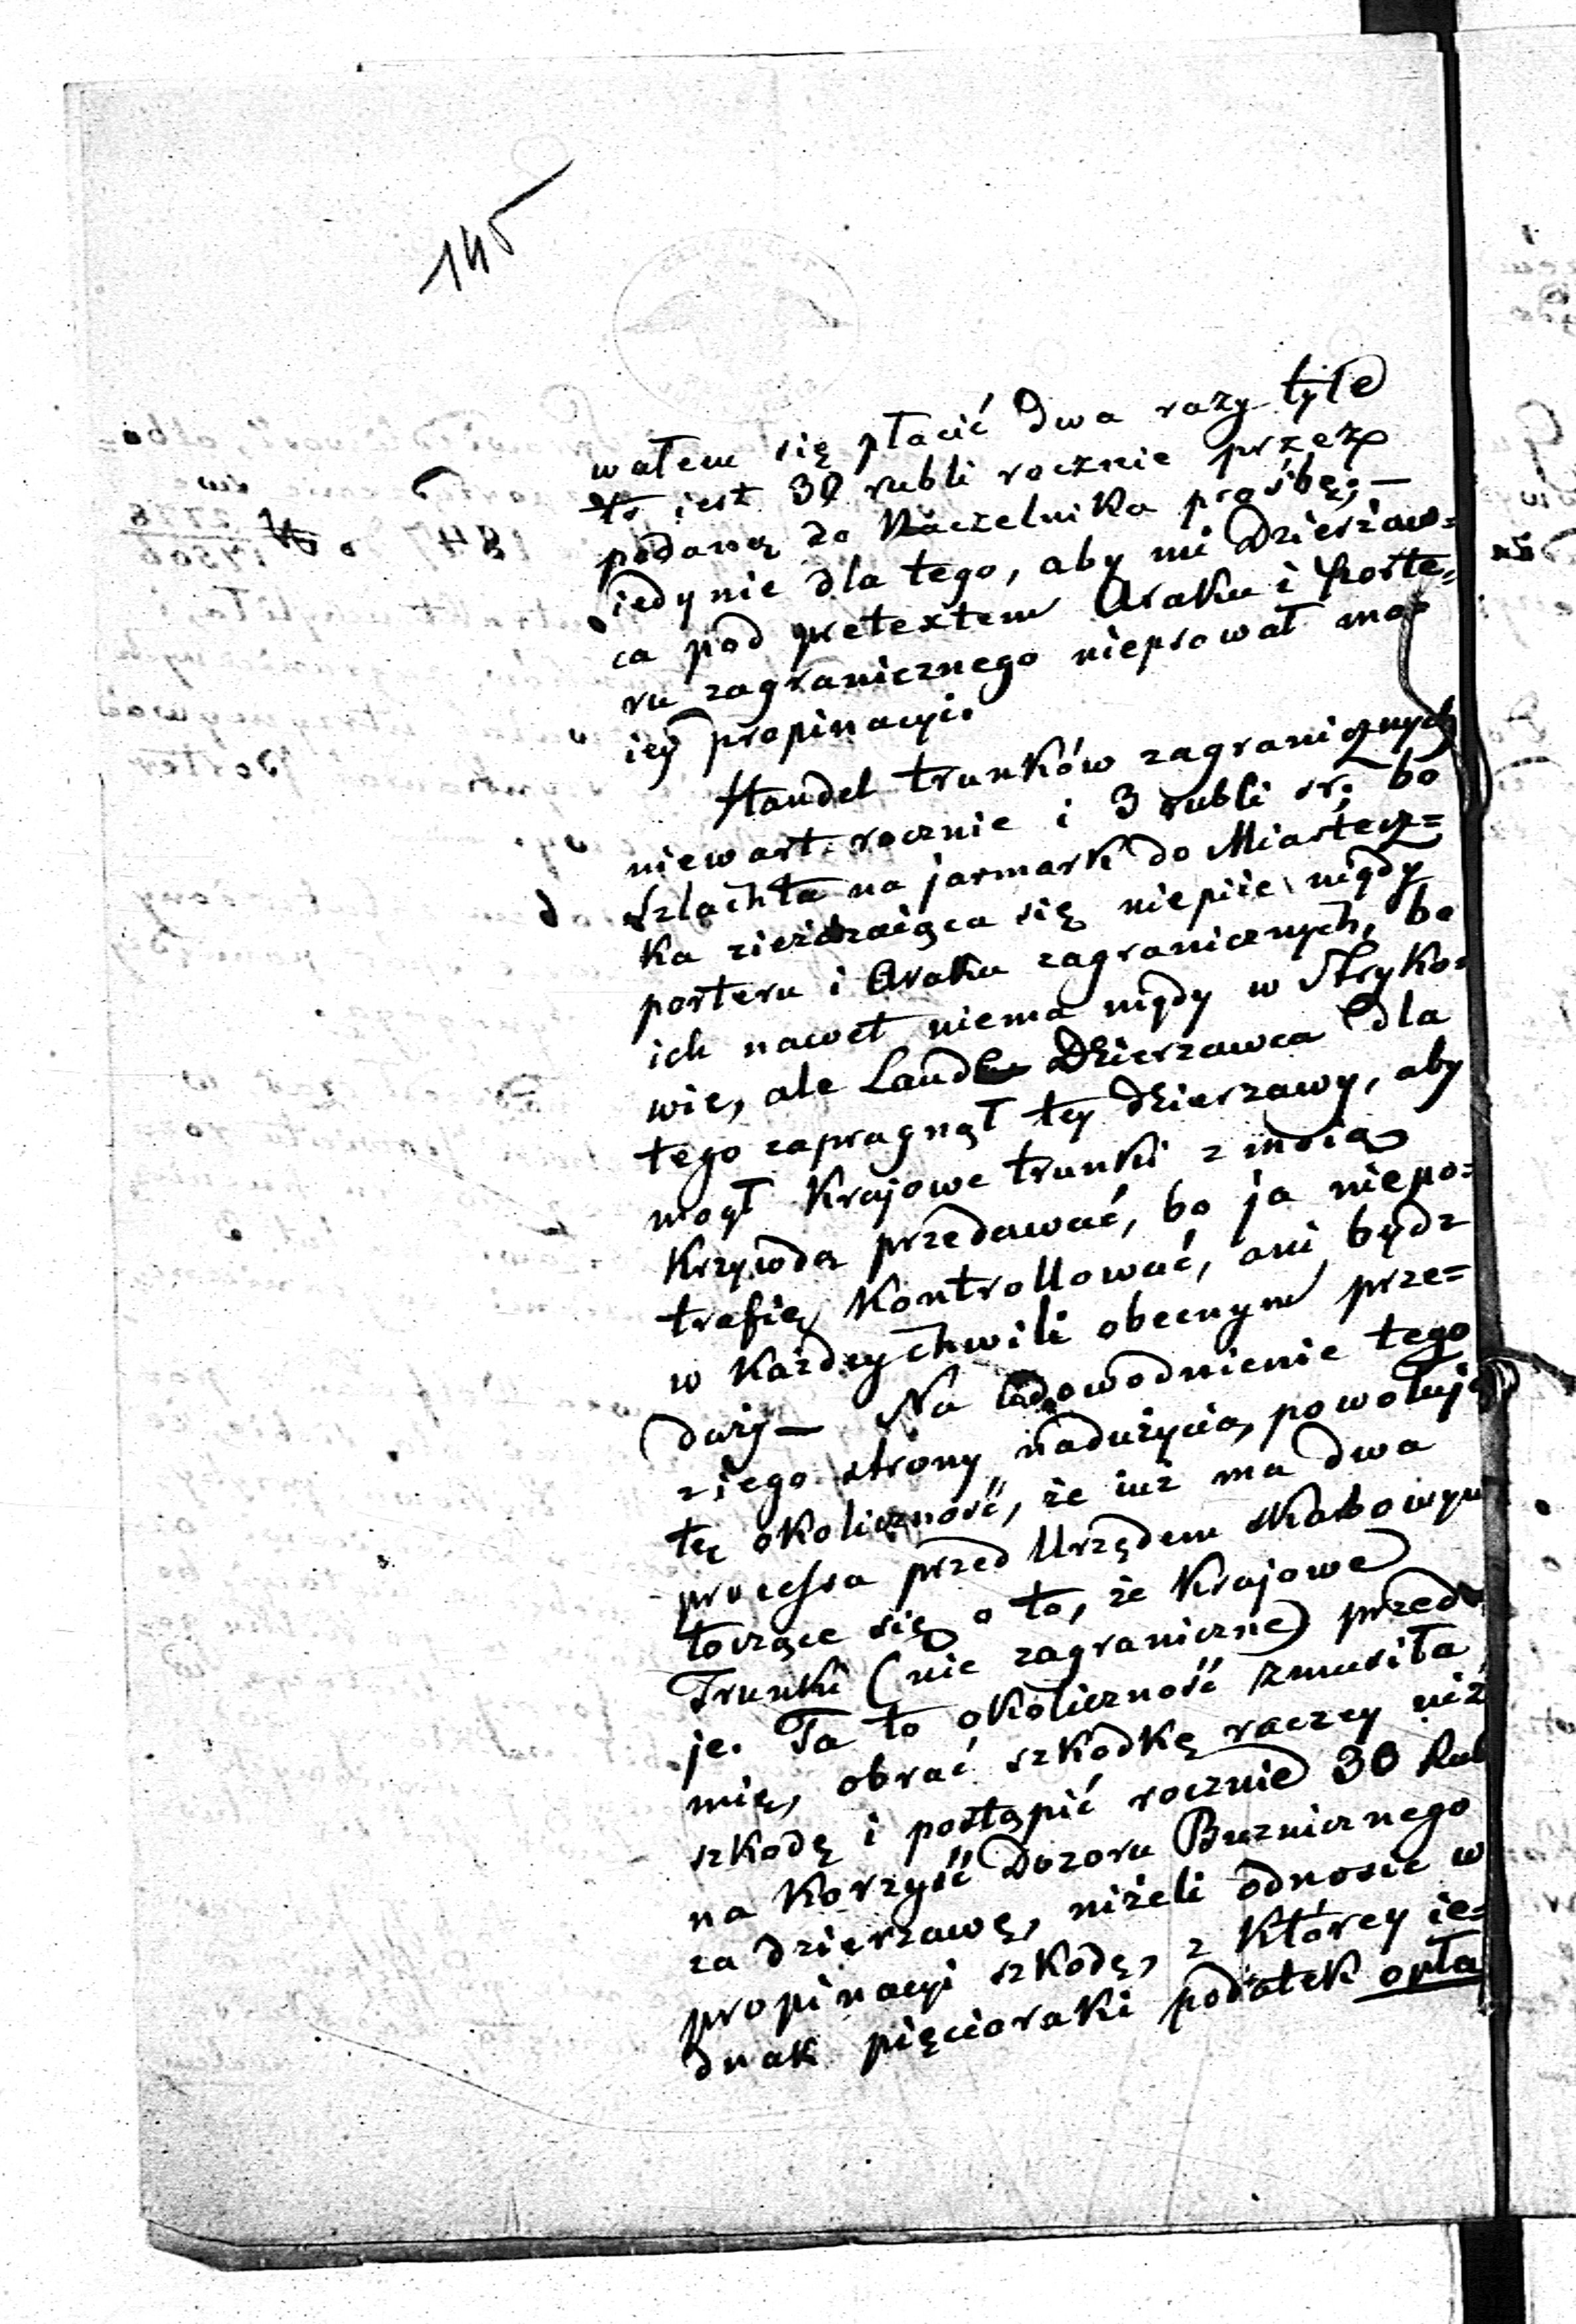 145
wałem się płacić dwa razy tyle
to iest 30 rubli rocznie przez
podaną do Naczelnika prośbę; —
iedynie dla tego, aby mi Dzierżaw=
ca pod pretextem Araku i Porte=
ru zagranicznego niepsował mo=
iey propinacyi.
Handel trunków zagranicznych
niewart rocznie i 3 rubli sr; bo
Szlachta na jarmark do Miastecz=
ka zieżdzaiąca się niepiie nigdy
porteru i Araku zagranicznych, bo
ich nawet niema nigdy w Stryko=
wie, ale Dzierzawca dla
tego zapragnął tey dzierzawy, aby
mógł Krajowe trunki z moią
Krzywdą przedawać, bo ja niepo=
trafię Kontrollować, ani bydz
w Każdey chwili obecnym prze=
daży — Na udowodnienie tego
z iego strony nadużycia, powołuję
tę okoliczność, że iuż ma dwa
processa przed Urzędem Skarbowym
toczące się o to, że Krajowe
Trunki (nie zagraniczne) przeda
je. Ta to okoliczność zmusiła
mię, obrać szkodkę raczey niż
szkodę i postąpić rocznie 30 Rub
na Korzyść Dozoru Bużnicznego
za dzierzawę, niżeli odnosić w
propinacyi szkodę, z Którey ie=
dnak pięcioraki podatek opła